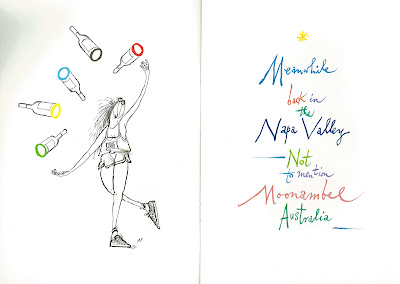 Meanwhile
back in
the
Napa Valley
Not
to mention
Moonambel
Australia